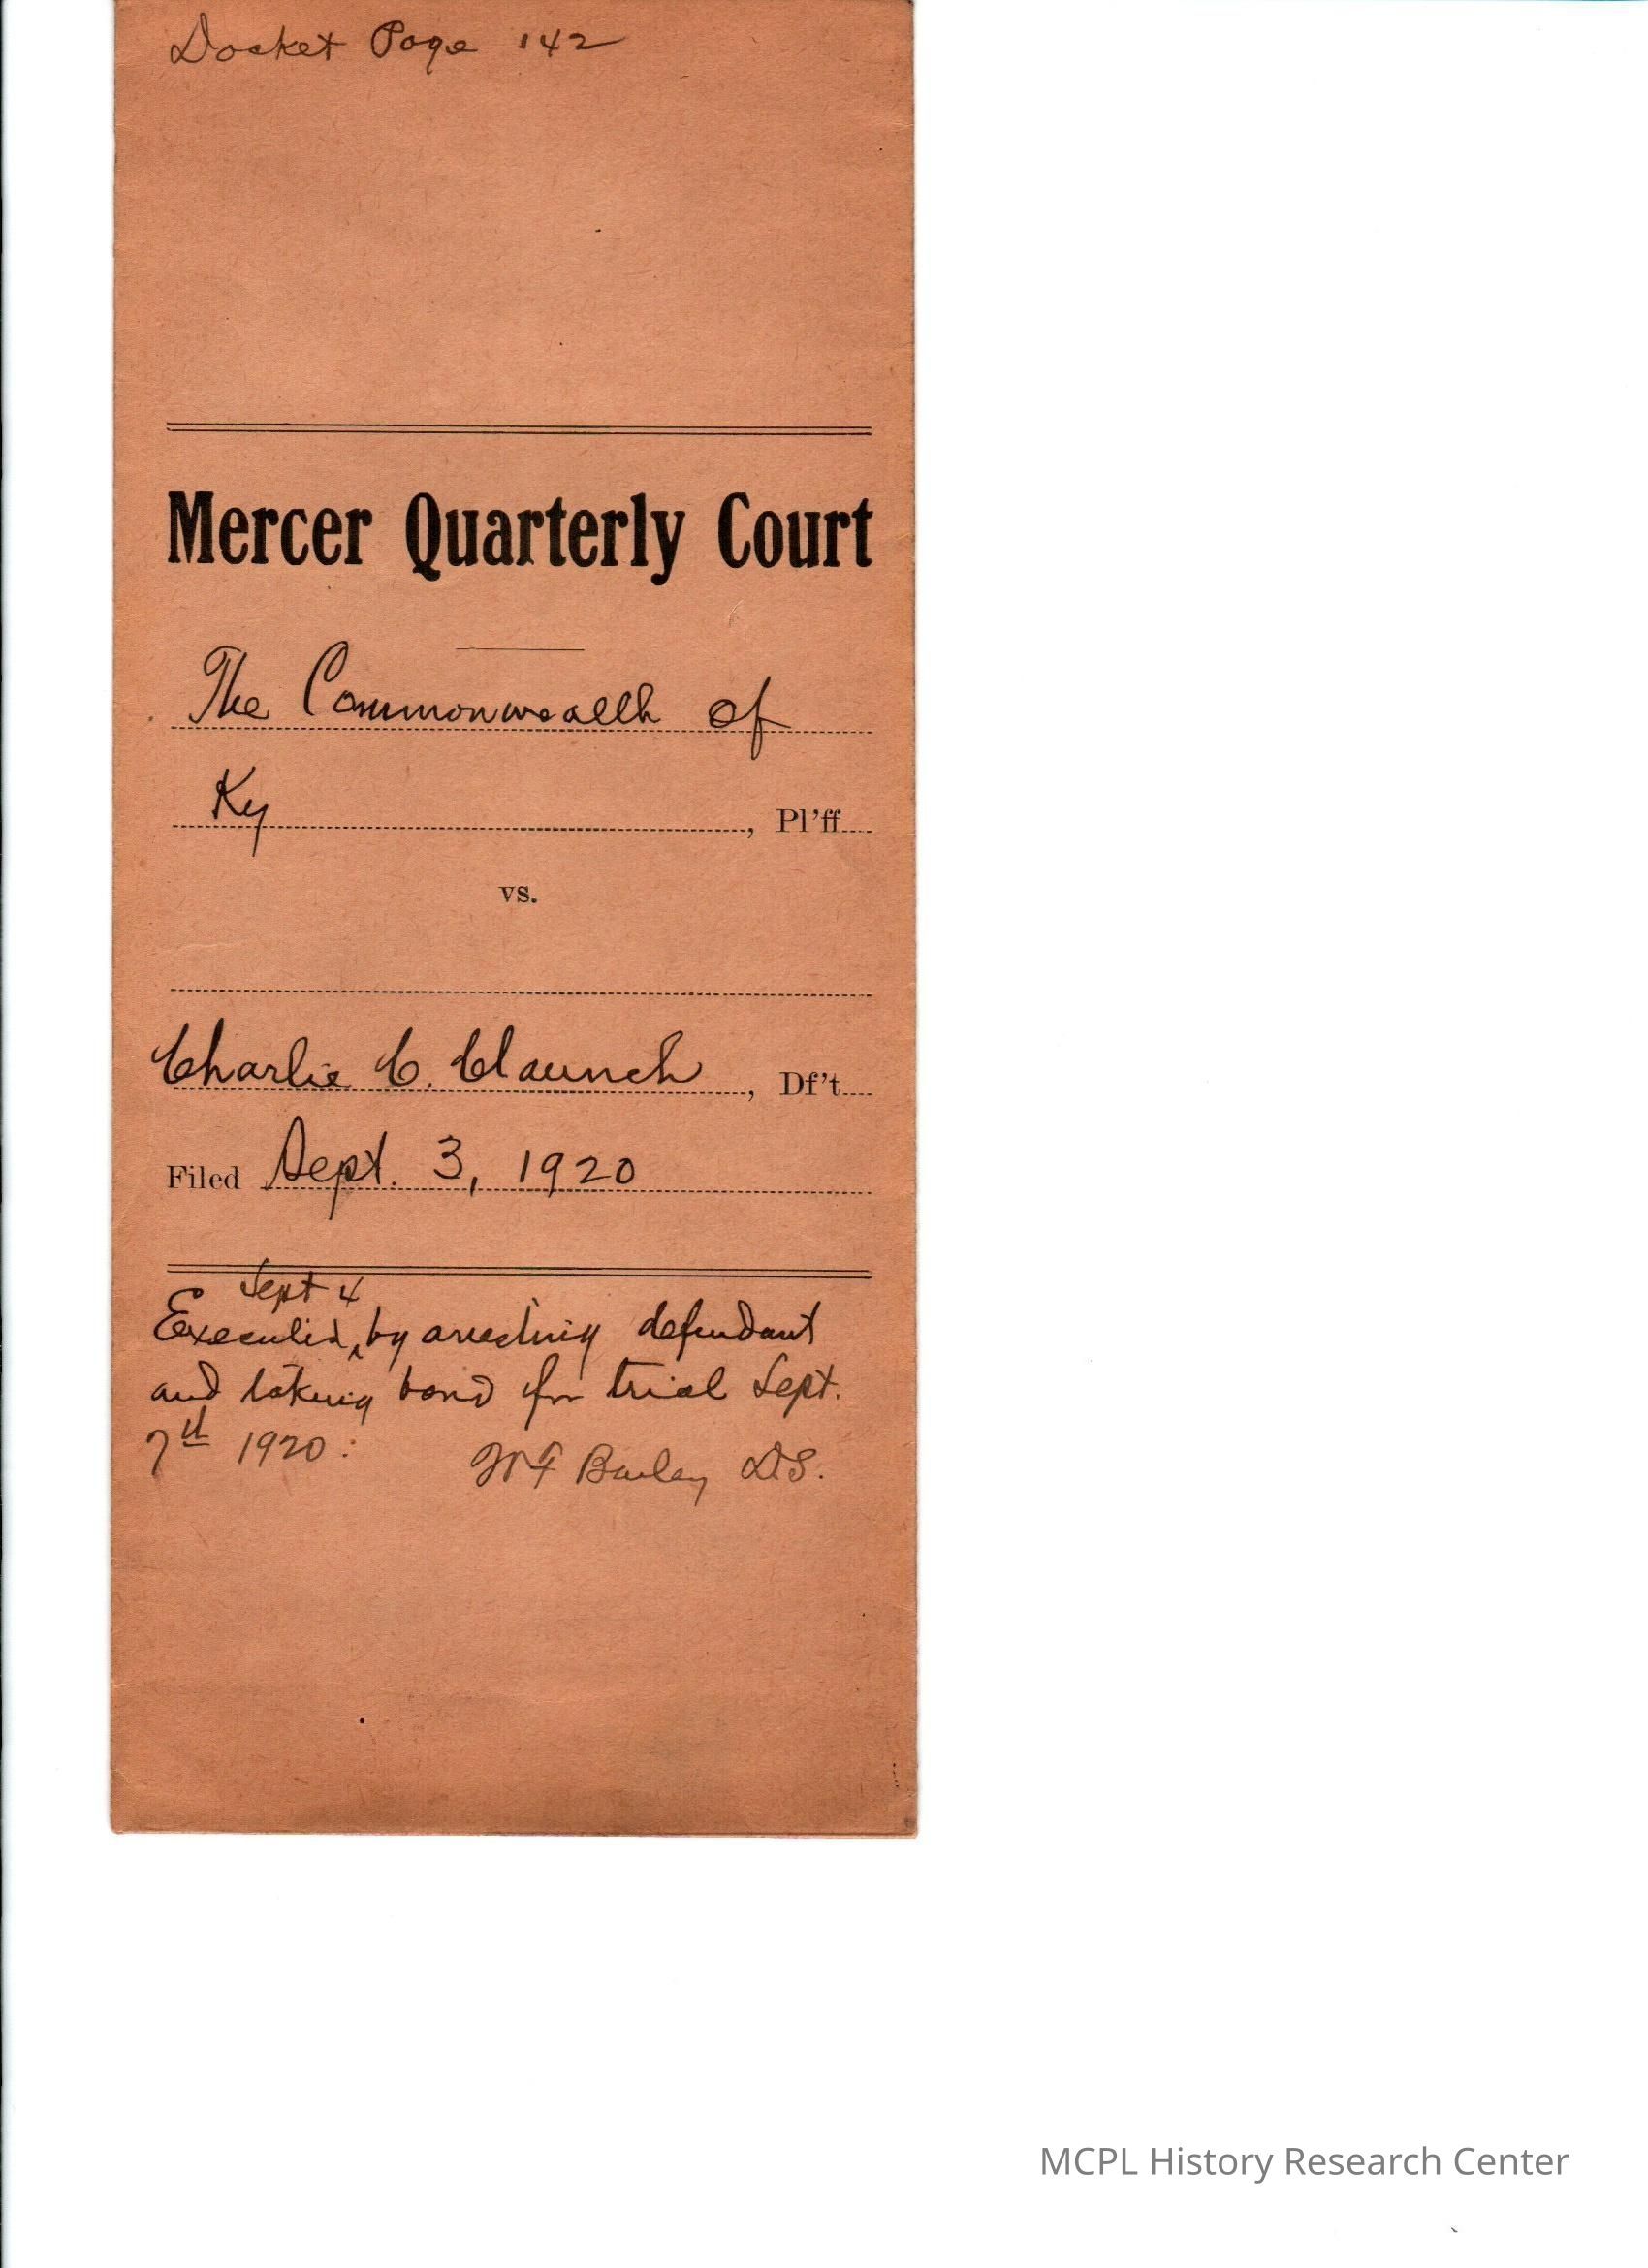 Docket Page 142
Mercer Quarterly Court
The Commonwealth of
Ky, Pl'ff
vs.
Charlie C. Claunch, Df't
Filed Sept. 3, 1920
Sept 4
Executed ^ by arresting defendant
and taking bond for trial Sept.
7th 1920.
Bailey D.S.
MCPL History Research Center